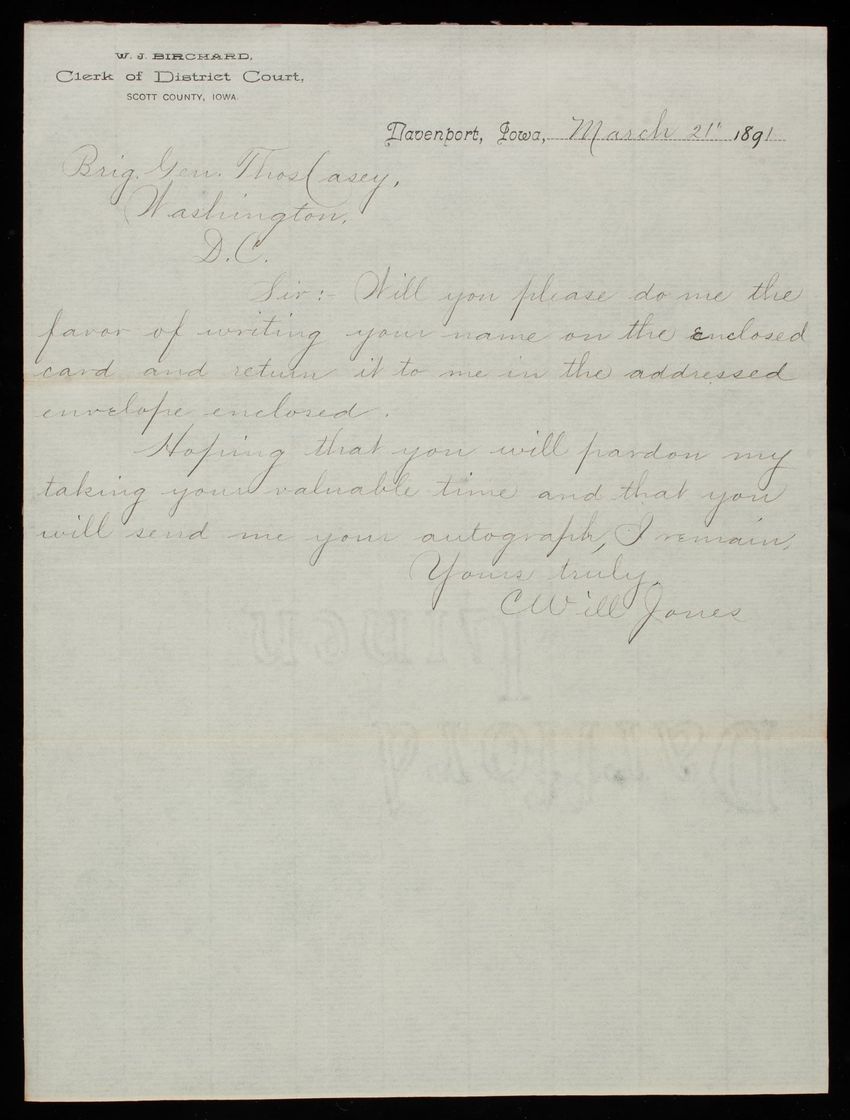 W. J. BIRCHARD,
Clerk of District Court,
SCOTT COUNTY, IOWA.
Davenport, Iowa, March 21" 1891
Brig. Gen. Thos Casey,
Washington,
D.C.
Sir:- Will you please do me the
favor of writing your name on the enclosed
card and return it to me in the addressed
envelope enclosed.
Hoping that you will pardon my
taking your valuable time and that you
will send me your autograph, I remain,
Yours truly,
C Will Jones